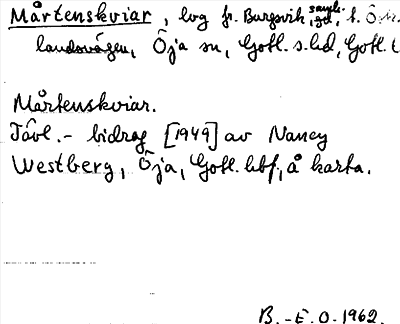 Mårtenskviar, lvg fr. Burgsvik, saml. sd, t. Ö
landsvägen, Öja sn, Gotl. s. hd, Gotl. l
Mårtenskviar.
Tävl.- bidrag [1949] av Nancy
Westberg, Öja, Gotl. hbf, å karta.
B.-E.O.1962.